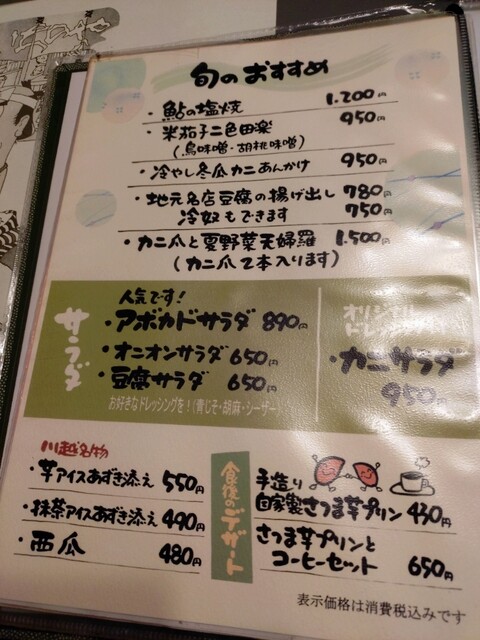 旬のおすすめ
・鮎の塩焼 1.200円
・米茄子二色田楽 950円
(鳥味噌・胡桃味噌)
・冷やし冬瓜カニあんかけ 950円
・地元名店豆腐の揚げ出し 780円
冷奴もできます 750円
・カニ爪と夏野菜天婦羅 1.500円
(カニ爪2本入ります)
サラダ
人気です!
・アボカドサラダ 890円
・オニオンサラダ 650円
・豆腐サラダ 650円
お好きなドレッシングを!(青じそ・胡麻・シーザー)
オリジナル
ドレッシング
・カニサラダ
950円
川越名物
・芋アイスあずき添え 550円
・抹茶アイスあずき添え 490円
・西瓜 480円
食後のデザート
手造り
自家製さつま芋プリン 430円
さつま芋プリンと
コーヒーセット 650円
表示価格は消費税込みです